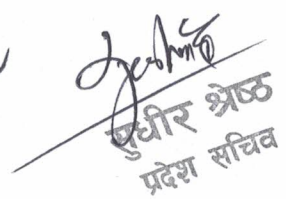 सुधीर श्रेष्ठ
प्रदेश सचिव